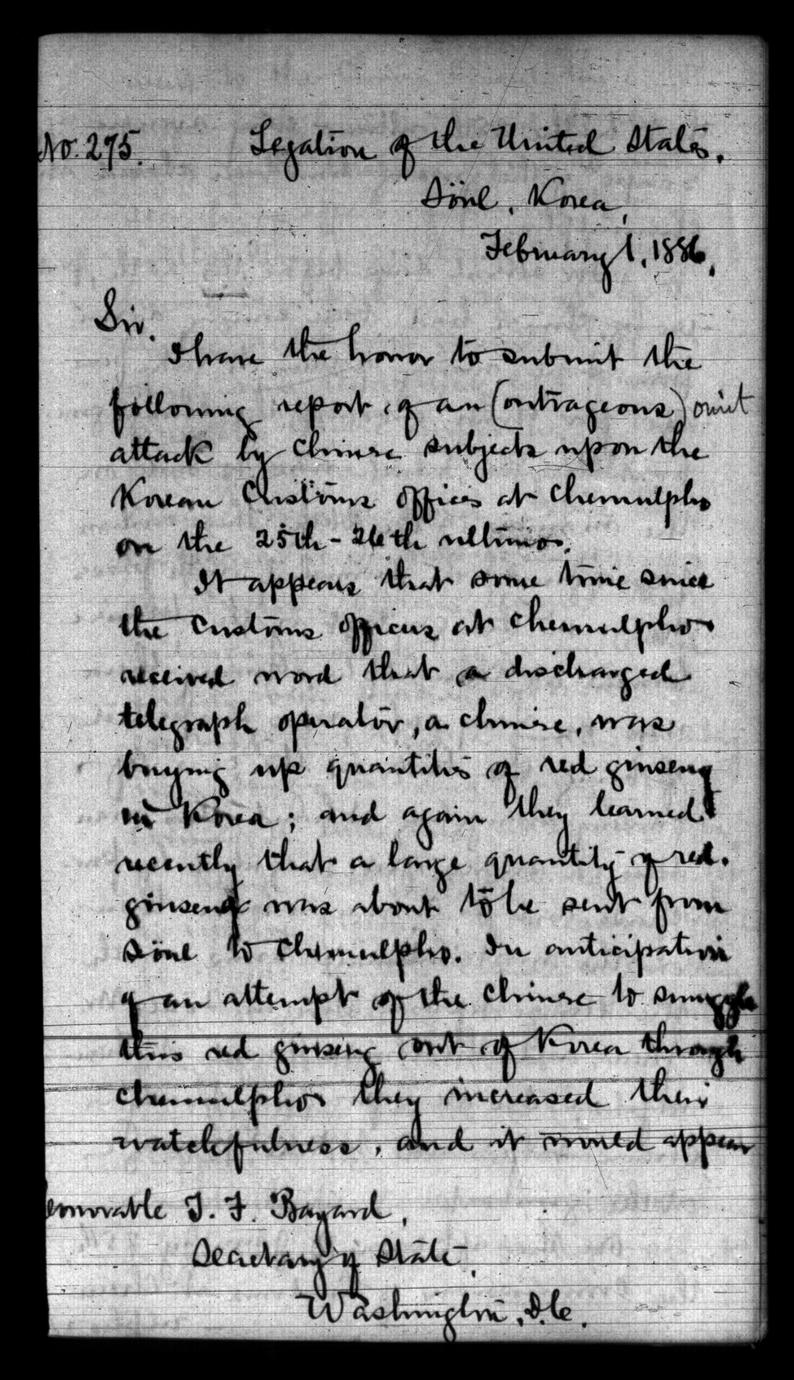 No. 275. Legation of the United States.
Söul, Korea,
February 1, 1886.
Sir.
I have the honor to submit the
following report of an (outrageous) omit
attack by Chinese subjects upon the
Korean Customs offices at Chemulpho
on the 25th-26th ultimo.
It appears that some time since
the Customs officers at Chemulpho
received word that a discharged
telegraph operator, a Chinese, was
buying up quantities of red ginseng
in Korea; and again they learned
recently that a large quantity of red.
ginseng was about to be sent from
Söul to Chemulpho. In anticipation
of an attempt of the Chinese to smuggle
this red ginseng out of Korea through
Chemulpho they increased their
watchfulness, and it would appear
Honorable T. F. Bayard,
Secretary of State,
Washington, D.C.